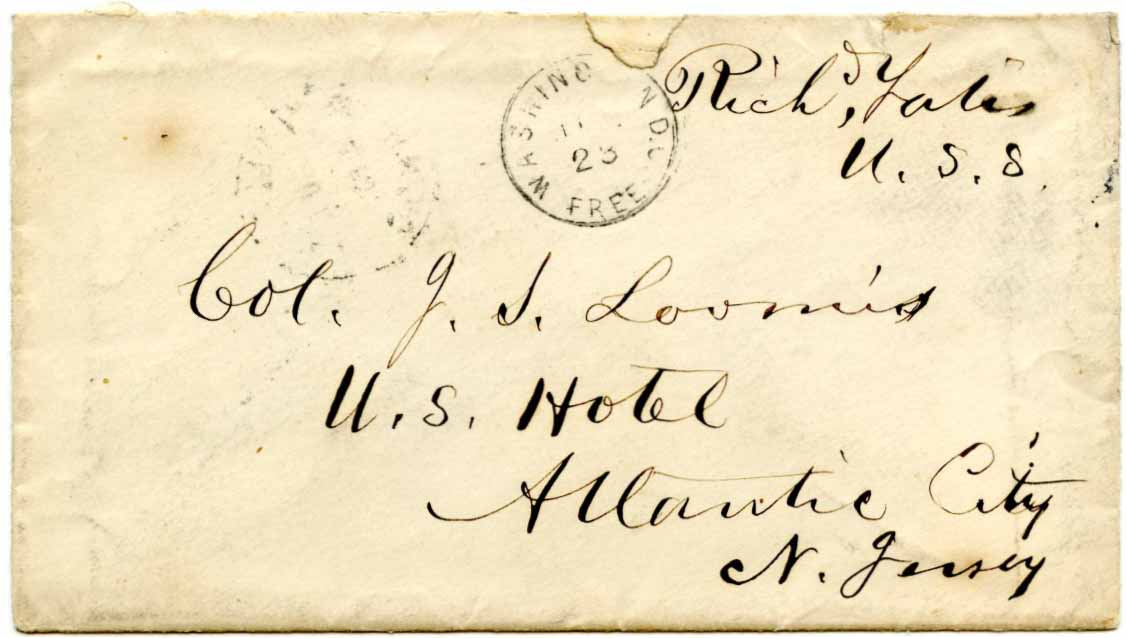 Rich<sup>d</sup>, Yates
U. S. S.
WASHING N D.C.
23
FREE
Col. J. S. Loomis
U.S. Hotel
Atlantic City
N. Jersey